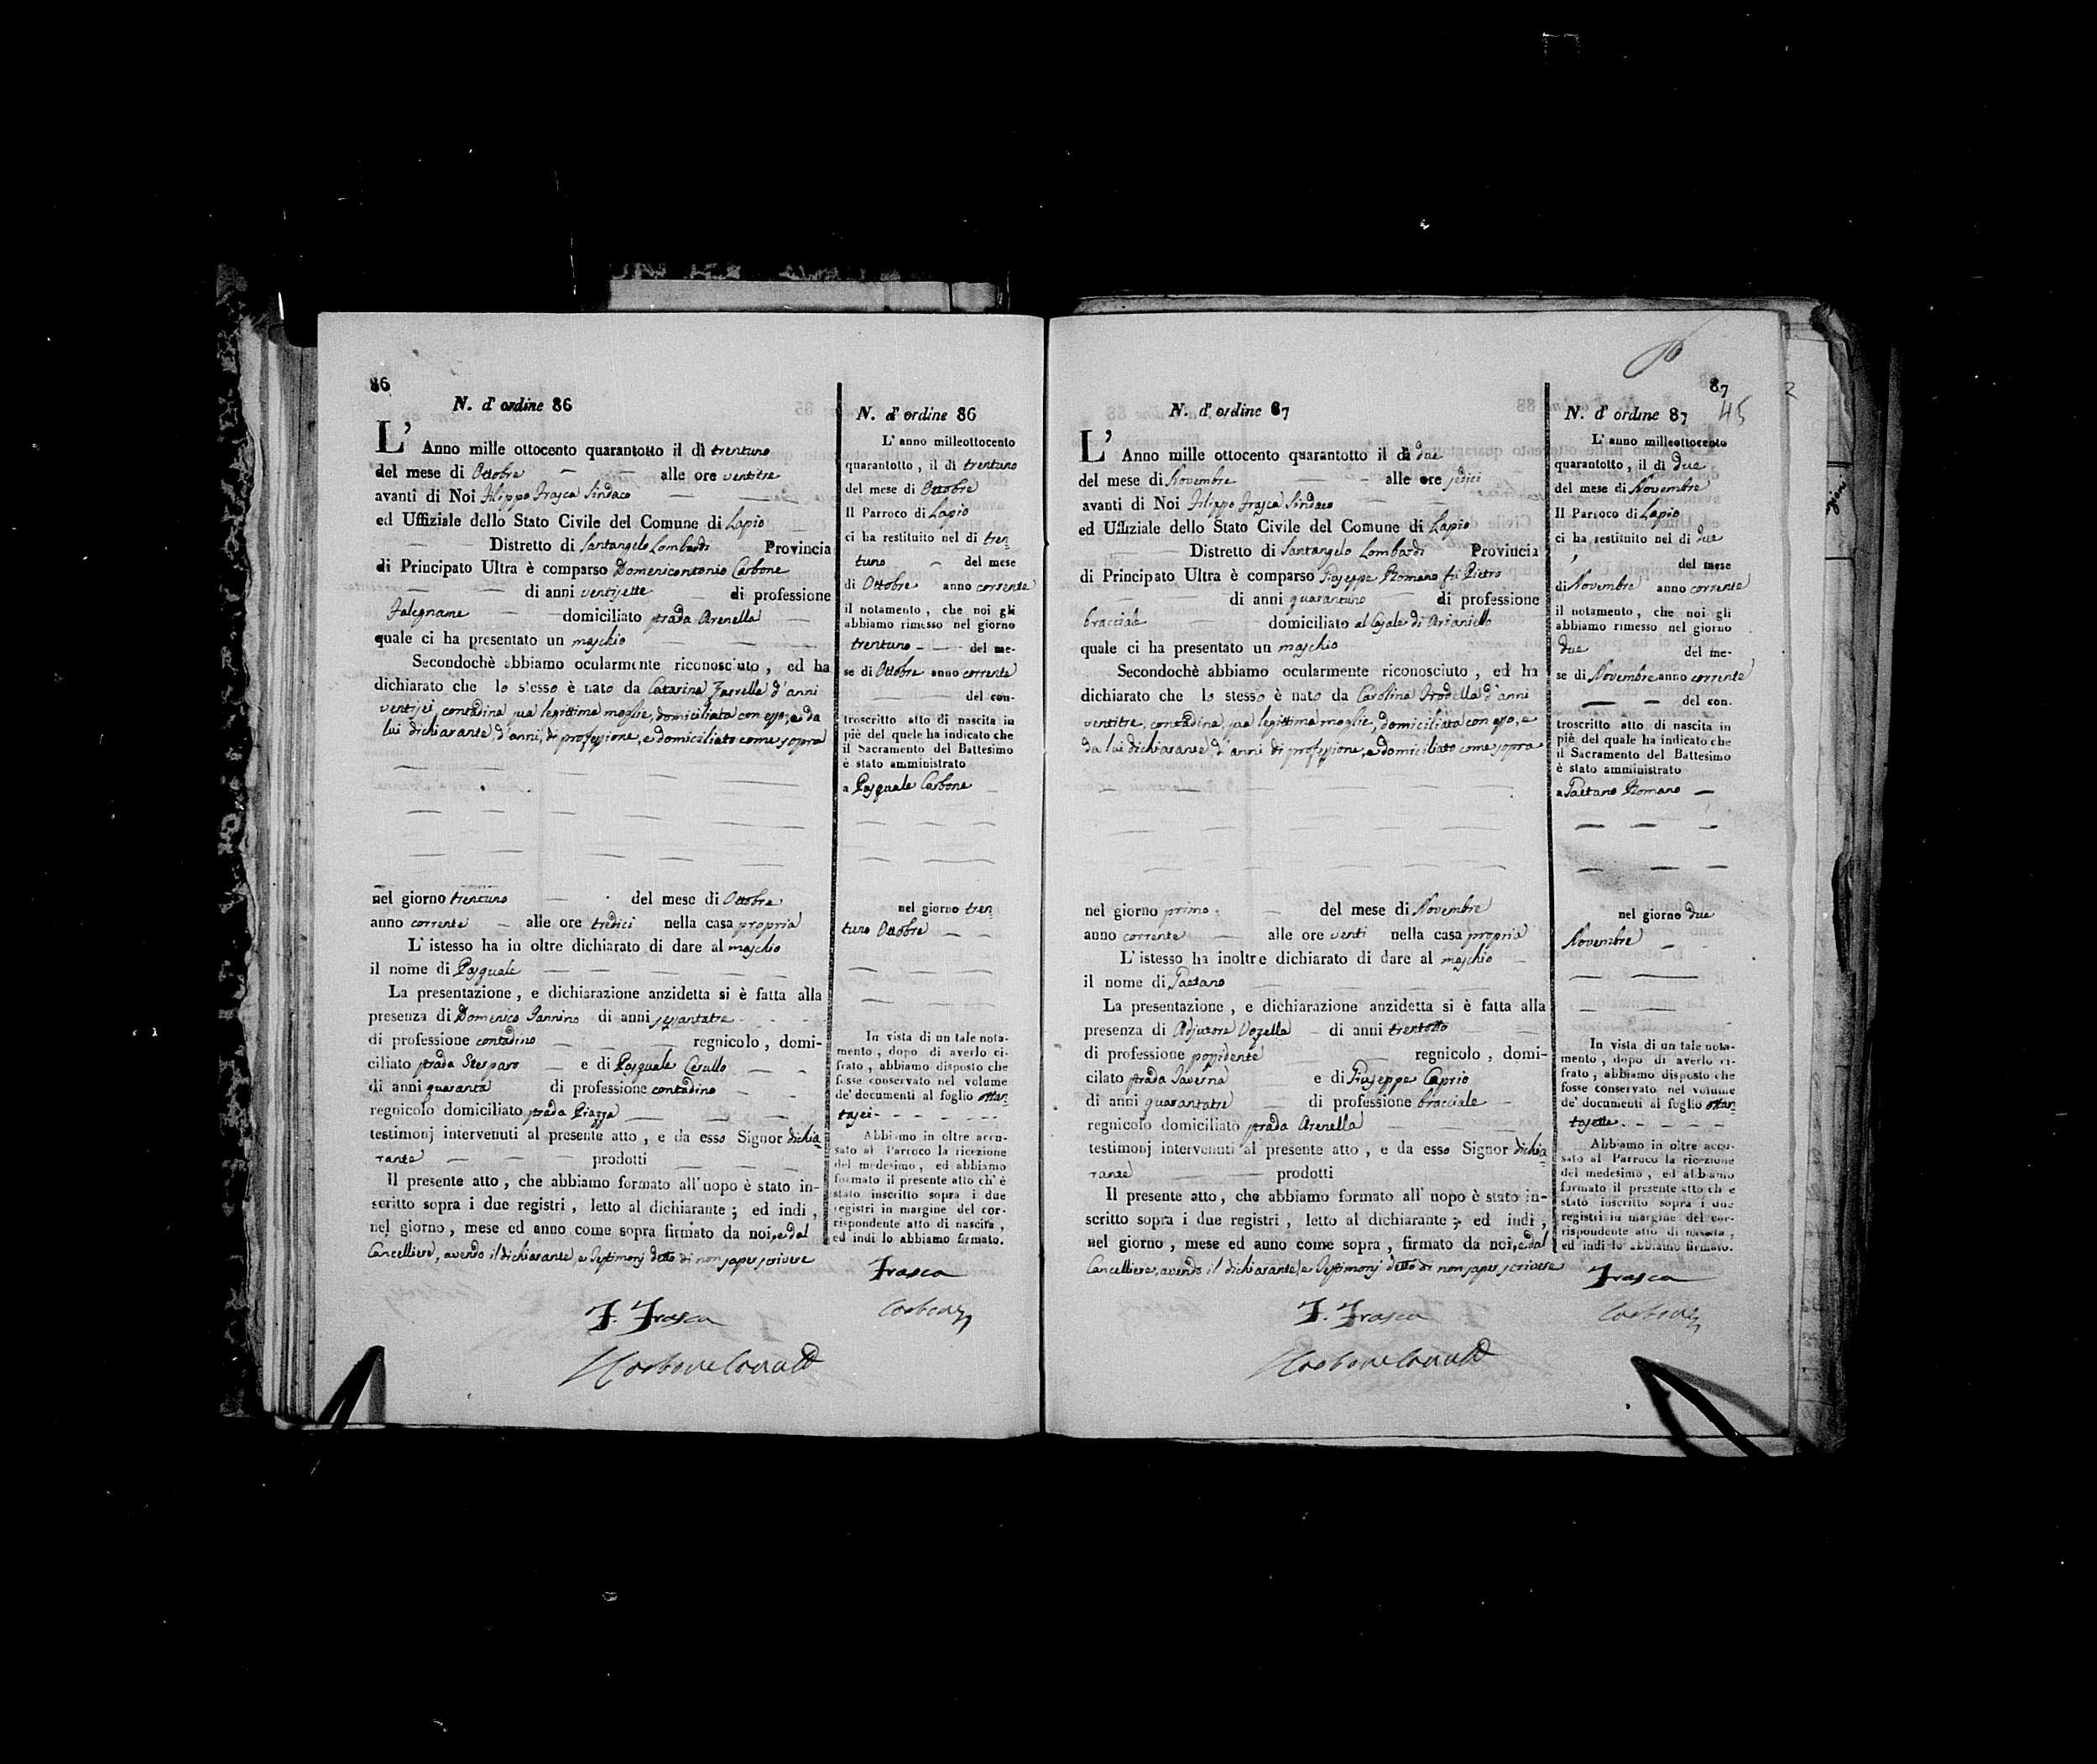 86
N. d' ordine 86
L' Anno mille ottocento quarantotto il dì trentuno
del mese di Ottobre alle ore ventitre
avanti di Noi Filippo Frasca Sindaco
ed Uffiziale dello Stato Civile del Comune di Lapio
Distretto di Santangelo Lombardi Provincia
di Principato Ultra è comparso Domenicantonio Carbone
di anni ventisette di professione
falegname domiciliato strada Arenella
quale ci ha presentato un maschio
Secondochè abbiamo ocularmente riconosciuto, ed ha
dichiarato che lo stesso è nato da Catarina d'anni
ventisei contadina sua legittima moglie, domiciliata con esso, e da
lui dichiarante, d'anni, di professione, e domiciliato come sopra
nel giorno trentuno del mese di Ottobre
anno corrente alle ore tredici nella casa propria
L' istesso ha in oltre dichiarato di dare al maschio
il nome di Pasquale
La presentazione, e dichiarazione anzidetta si è fatta alla
presenza di Domenico Iannino di anni sessantatre
di professione contadino regnicolo, domi-
ciliato strada e di Pasquale Cerullo
di anni quaranta di professione contadino
regnicolo domiciliato strada Piazza
testimonj intervenuti al presente atto, e da esso Signor dichia
rante prodotti
Il presente atto, che abbiamo formato all'uopo è stato in-
scritto sopra i due registri, letto al dichiarante; ed indi,
nel giorno, mese ed anno come sopra firmato da noi, e dal
Cancelliere, avendo il dichiarante, e Testimonj detto di non saper scrivere
F. Frasca
N. d' ordine 86
L' anno milleottocento
quarantotto, il dì trentuno
del mese di Ottobre
Il Parroco di Lapio
ci ha restituito nel dì tren
tuno del mese
di Ottobre anno corrente
il notamento, che noi gli
abbiamo rimesso nel giorno
trentuno del me-
se di Ottobre anno corrente
del con-
troscritto atto di nascita in
piè del quele ha indicato che
il Sacramento del Battesimo
è stato amministrato
a Pasquale Carbone
nel giorno tren
tuno Ottobre
In vista di un tale nota-
mento, dopo di averlo ci-
frato, abbiamo disposto che
fosse conservato nel volume
de' documenti al foglio ottan
tasei
Abbiamo in oltre accu-
sato al Parroco la ricezione
del medesimo, ed abbiamo
formato il presente atto ch' è
stato inscritto sopra i due
registri in margine del cor-
rispondente atto di nascita,
ed indi lo abbiamo firmato.
Frasca
87
45
N. d' ordine 87
L' Anno mille ottocento quarantotto il dì due
del mese di Novembre alle ore sedici
avanti di Noi Filippo Frasca Sindaco
ed Uffiziale dello Stato Civile del Comune di Lapio
Distretto di Santangelo Lombardi Provincia
di Principato Ultra è comparso Giuseppe Romano fu Pietro
di anni quarantuno di professione
bracciale domiciliato al Casale di Arianiello
quale ci ha presentato un maschio
Secondochè abbiamo ocularmente riconosciuto, ed ha
dichiarato che lo stesso è nato da Carolina d'anni
ventitre, contadina, sua legittima moglie, domiciliata con esso, e
da lui dichiarante, d'anni di professione, e domiciliato come sopra
nel giorno primo del mese di Novembre
anno corrente alle ore venti nella casa propria
L' istesso ha inoltre dichiarato di dare al maschio
il nome di Gaetano
La presentazione, e dichiarazione anzidetta si è fatta alla
presenza di Adjutore Vozella di anni trentotto
di professione possidente regnicolo, domi-
cilato strada Taverna e di Giuseppe Caprio
di anni quarantatre di professione bracciale
regnicolo domiciliato strada Arenella
testimonj intervenuti al presente atto, e da esso Signor dichia
rante prodotti
Il presente atto, che abbiamo formato all' uopo è stato in-
scritto sopra i due registri, letto al dichiarante; ed indi,
nel giorno, mese ed anno come sopra, firmato da noi, e dal
Cancelliere, avendo il dichiarante, e Testimonj detto di non saper scrivere
F. Frasca
N. d' ordine 87
L' anno milleottocento
quarantotto, il dì due
del mese di Novembre
Il Parroco di Lapio
ci ha restituito nel dì due
del mese
di Novembre anno corrente
il notamento, che noi gli
abbiamo rimesso nel giorno
due del me-
se di Novembre anno corrente
del con-
troscritto atto di nascita in
piè del quale ha indicato che
il Sacramento del Battesimo
è stato amministrato
a Gaetano Romano
nel giorno due
Novembre
In vista di un tale nota-
mento, dopo di averlo ci-
frato, abbiamo disposto che
fosse conservato nel volume
de' documenti al foglio ottan
tasette
Abbiamo in oltre accu-
sato al Parroco la ricezione
del medesimo, ed abbiamo
formato il presente atto ch' è
stato inscritto sopra i due
registri in margine del cor-
rispondente atto di nascita,
ed indi lo abbiamo firmato.
Frasca